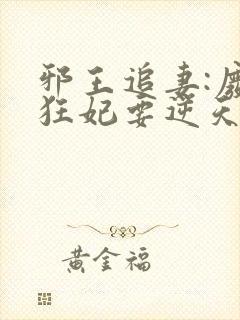 邪王追妻:废
狂妃要逆天
黄金福